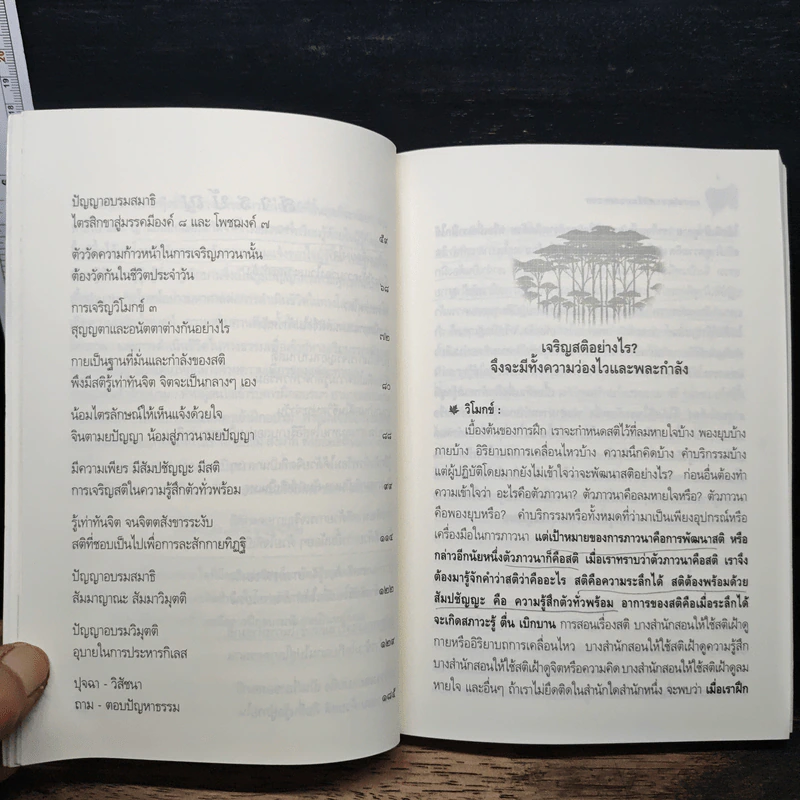 ปัญญาอบรมสมาธิ
ไตรสิกขาสู่มรรคมีองค์ ๘ และ โพชฌงค์ ๗
๕๙
ตัววัดความก้าวหน้าในการเจริญภาวนานั้น
ต้องวัดกันในชีวิตประจำวัน
๖๘
การเจริญวิโมกข์ ๓
สุญญตาและอนัตตาต่างกันอย่างไร
๗๒
กายเป็นฐานที่มั่นและกำลังของสติ
พึงมีสติรู้เท่าทันจิต จิตจะเป็นกลางๆ เอง
๘๐
น้อมไตรลักษณ์ให้เห็นแจ้งด้วยใจ
จินตามยปัญญา น้อมสู่ภาวนามยปัญญา
๘๘
มีความเพียร มีสัมปชัญญะ มีสติ
การเจริญสติในความรู้สึกตัวทั่วพร้อม
๙๙
รู้เท่าทันจิต จนจิตตสังขารระงับ
สติที่ชอบเป็นไปเพื่อการละสักกายทิฏฐิ
๑๑๔
ปัญญาอบรมสมาธิ
สัมมาญาณะ สัมมาวิมุตติ
๑๒๒
ปัญญาอบรมวิมุตติ
อุบายในการประหารกิเลส
๑๒๙
ปุจฉา - วิสัชนา
ถาม - ตอบปัญหาธรรม
๑๘๕
เจริญสติอย่างไร?
จึงจะมีทั้งความว่องไวและพละกำลัง
วิโมกข์ :
เบื้องต้นของการฝึก เราจะกำหนดสติไว้ที่ลมหายใจบ้าง พองยุบบ้าง
กายบ้าง อิริยาบถการเคลื่อนไหวบ้าง ความนึกคิดบ้าง คำบริกรรมบ้าง
แต่ผู้ปฏิบัติโดยมากยังไม่เข้าใจว่าจะพัฒนาสติอย่างไร? ก่อนอื่นต้องทำ
ความเข้าใจว่า อะไรคือตัวภาวนา? ตัวภาวนาคือลมหายใจหรือ? ตัวภาวนา
คือพองยุบหรือ? คำบริกรรมหรือทั้งหมดที่ว่ามาเป็นเพียงอุปกรณ์หรือ
เครื่องมือในการภาวนา แต่เป้าหมายของการภาวนาคือการพัฒนาสติ หรือ
กล่าวอีกนัยหนึ่งตัวภาวนาก็คือสติ เมื่อเราทราบว่าตัวภาวนาคือสติ เราจึง
ต้องมารู้จักคำว่าสติว่าคืออะไร สติคือความระลึกได้ สติต้องพร้อมด้วย
สัมปชัญญะ คือ ความรู้สึกตัวทั่วพร้อม อาการของสติคือเมื่อระลึกได้
จะเกิดสภาวะรู้ ตื่น เบิกบาน การสอนเรื่องสติ บางสำนักให้ใช้สติเฝ้าดู
กายหรืออิริยาบถการเคลื่อนไหว บางสำนักสอนให้ใช้สติเฝ้าดูความรู้สึก
บางสำนักสอนให้ใช้สติเฝ้าดูจิตหรือความคิด บางสำนักสอนให้ใช้สติเฝ้าดูลม
หายใจ และอื่นๆ ถ้าเราไม่ยึดติดในสำนักใดสำนักหนึ่ง จะพบว่า เมื่อเราฝึก